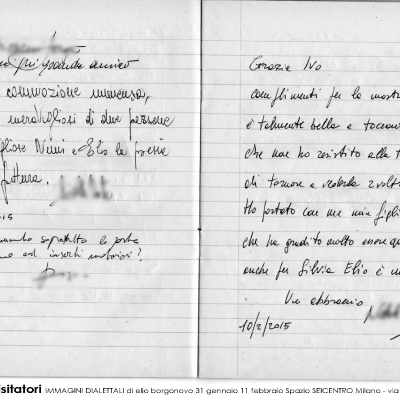 più grande amico
commozione immensa,
meravigliosi di due persone
Nini e Elio la poesia
pittura.
2015
soprattutto la parte
ed inserti materici!
Grazie Ivo
complimenti per la mostra
è talmente bella e toccan
che non ho resistito alla t
di tornare a vederla 2 volt
Ho portato con me mia figli
che ha gradito molto
anche per Silvia Elio è u
Un abbraccio
10/2/2015
sitatori IMMAGINI DIALETTALI di elio borgonovo 31 gennaio 11 febbraio Spazio SEICENTRO Milano - via